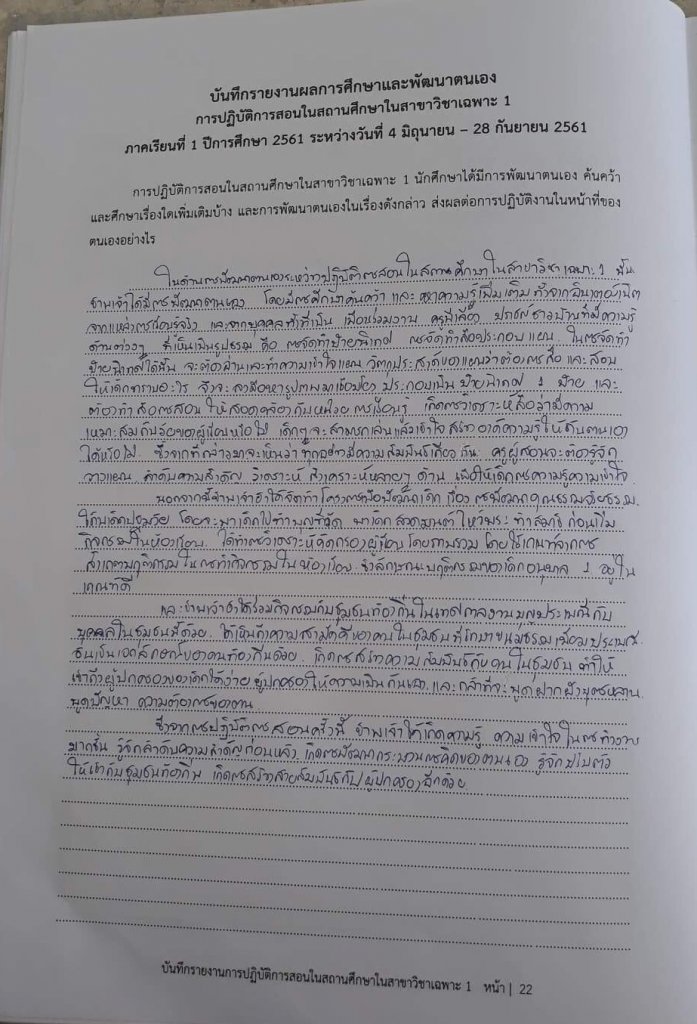 บันทึกรายงานผลการศึกษาและพัฒนาตนเอง
การปฏิบัติการสอนในสถานศึกษาในสาขาวิชาเฉพาะ 1
ภาคเรียนที่ 1 ปีการศึกษา 2561 ระหว่างวันที่ 4 มิถุนายน – 28 กันยายน 2561
การปฏิบัติการสอนในสถานศึกษาในสาขาวิชาเฉพาะ 1 นักศึกษาได้มีการพัฒนาตนเอง ค้นคว้า
และศึกษาเรื่องใดเพิ่มเติมบ้าง และการพัฒนาตนเองในเรื่องดังกล่าว ส่งผลต่อการปฏิบัติงานในหน้าที่ของ
ตนเองอย่างไร
ในด้านการพัฒนาตนเองระหว่างปฏิบัติการสอนในสถานศึกษาในสาขาวิชาเฉพาะ 1 นั้น
ข้าพเจ้าได้มีการพัฒนาตนเอง โดยมีการศึกษาค้นคว้า และหาความรู้เพิ่มเติมทั้งจากอินเตอร์เน็ต
จากแหล่งการเรียนรู้จริง และจากบุคคลทั้งที่เป็น เพื่อนร่วมงาน ครูพี่เลี้ยง ปราชญ์ชาวบ้านที่มีความรู้
ด้านต่างๆ ที่เห็นเป็นรูปธรรม คือ การจัดทำป้ายนิเทศ การจัดทำสื่อประกอบแผน ในการจัดทำ
ป้ายนิเทศได้นั้น จะต้องอ่านและทำความเข้าใจแผน วัตถุประสงค์ของแผนว่าต้องการสื่อ และสอน
ให้เด็กทราบอะไร จึงจะลงมือหารูปภาพมาเชื่อมโยง ประกอบเป็น ป้ายนิเทศ 1 ป้าย และ
ต้องทำสื่อการสอน ให้สอดคล้องกับหน่วยการเรียนรู้ เกิดการวิเคราะห์สื่อว่ามีความ
เหมาะสมกับวัยของผู้เรียนหรือไม่ เด็กๆ จะสามารถเล่นแล้วเข้าใจ สร้างองค์ความรู้ให้กับตนเอง
ได้หรือไม่ ซึ่งจากที่กล่าวมาจะเห็นว่าทุกอย่างมีความสัมพันธ์เกี่ยวกัน ครูผู้สอนจะต้องรู้จัก
วางแผน ลำดับความสำคัญ วิเคราะห์ สังเคราะห์หลายๆ ด้าน เพื่อให้เด็กเกิดความรู้ความเข้าใจ
นอกจากนี้ข้าพเจ้ายังได้จัดทำโครงการเพื่อพัฒนาเด็ก เรื่อง การพัฒนาคุณธรรมจริยธรรม
ให้กับเด็กปฐมวัย โดยจะพาเด็กไปทำบุญที่วัด พาเด็กสวดมนต์ ไหว้พระ ทำสมาธิ ก่อนเริ่ม
กิจกรรมในห้องเรียน ได้ทำการวิเคราะห์คัดกรองผู้เรียน โดยภาพรวม โดยใช้เกณฑ์จากการ
สังเกตพฤติกรรมในการทำกิจกรรมในห้องเรียน ซึ่งลักษณะพฤติกรรมของเด็กอนุบาล 1 อยู่ใน
เกณฑ์ดี
และข้าพเจ้ายังได้ร่วมกิจกรรมกับชุมชนท้องถิ่นในเทศกาลงานบุญประเพณีกับ
บุคคลในชุมชนนี้ด้วย ได้เห็นถึงความสามัคคีของคนในชุมชนที่รักษาขนมธรรมเนียมประเพณี
อันเป็นเอกลักษณ์ของคนท้องถิ่นด้วย เกิดการสร้างความสัมพันธ์กับคนในชุมชน ทำให้
เข้าถึงผู้ปกครองของเด็กได้ง่าย ผู้ปกครองให้ความเป็นกันเอง และกล้าที่จะพูดฝากฝังบุตรหลาน
พูดปัญหา ความต้องการของตน
ซึ่งจากการปฏิบัติการสอนครั้งนี้ ข้าพเจ้าได้เกิดความรู้ ความเข้าใจในการทำงาน
มากขึ้น รู้จักลำดับความสำคัญก่อนหลัง เกิดการพัฒนากระบวนการคิดของตนเอง รู้จักปรับตัว
ให้เข้ากับชุมชนท้องถิ่น เกิดการสร้างสายสัมพันธ์กับผู้ปกครองอีกด้วย
บันทึกรายงานการปฏิบัติการสอนในสถานศึกษาในสาขาวิชาเฉพาะ 1 หน้า | 22